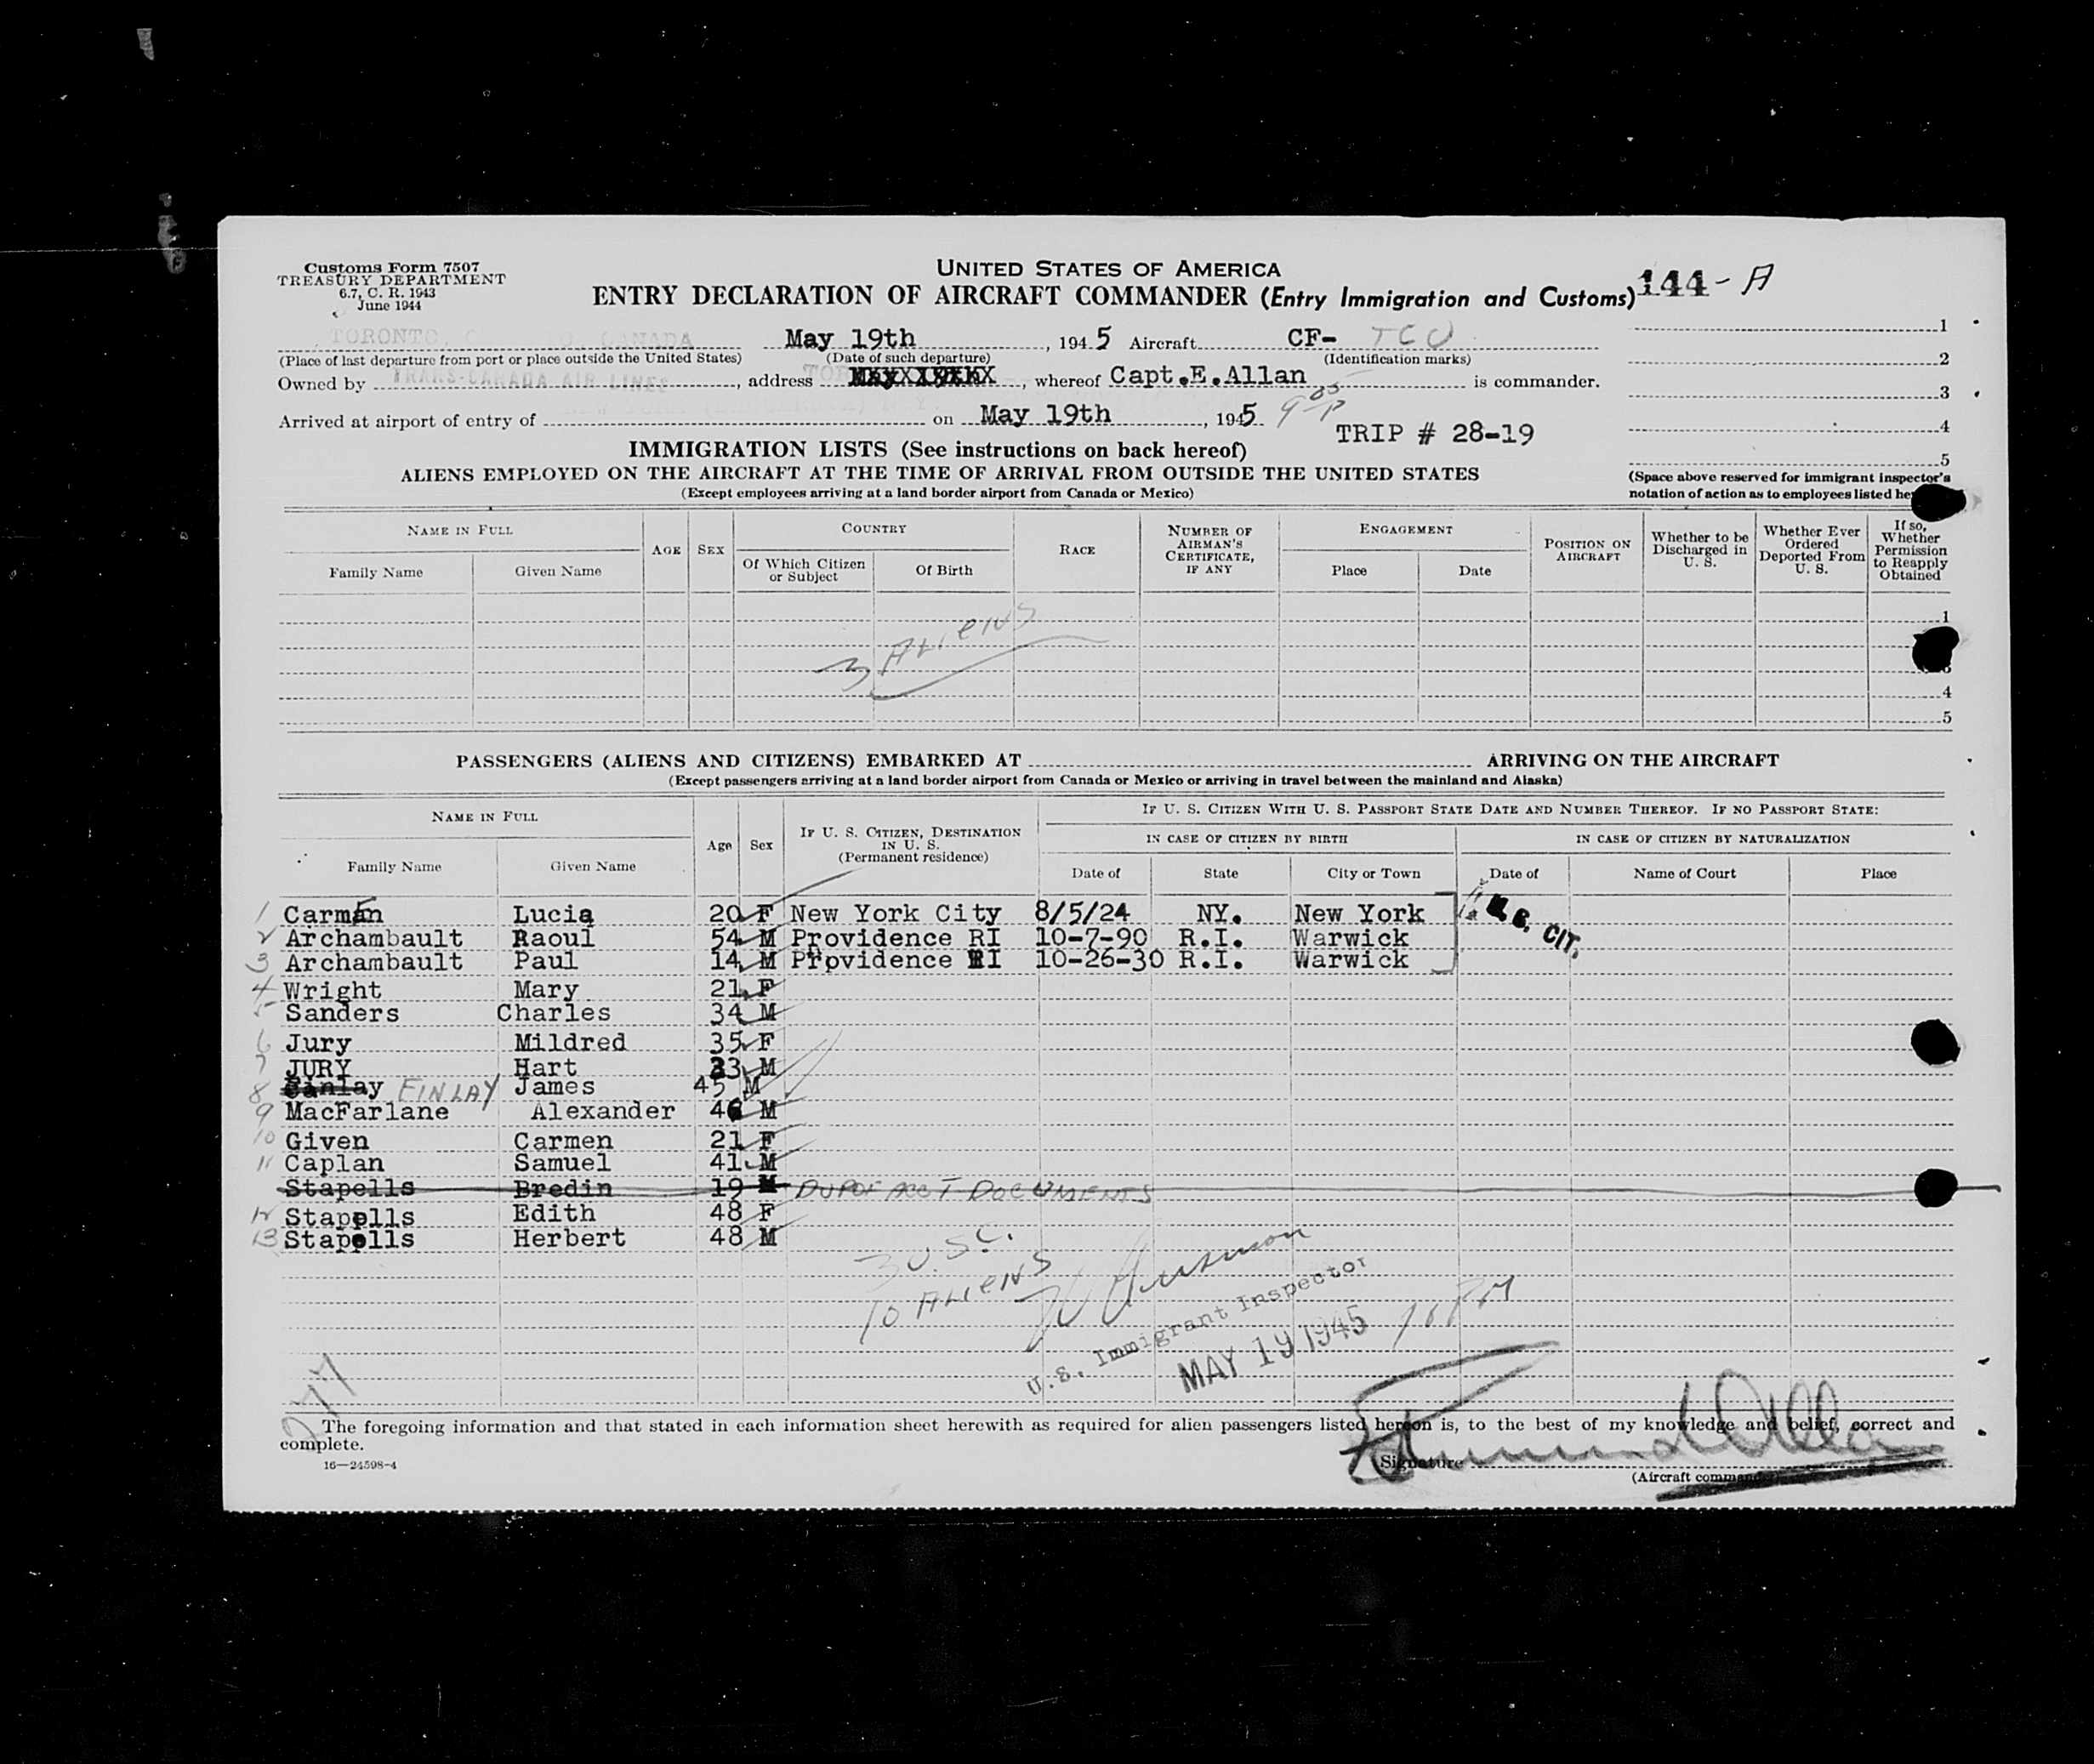 Customs Form 7507
TREASURY DEPARTMENT
6.7, C. R. 1943
June 1944
UNITED STATES OF AMERICA
ENTRY DECLARATION OF AIRCRAFT COMMANDER (Entry Immigration and Customs)
144-A
TORONTO, CANADA May 19th, 1945 Aircraft CF- TCO
(Place of last departure from port or place outside the United States) (Date of such departure) (Identification marks)
Owned by TRANS-CANADA AIR LINES, address, whereof Capt.E.Allan is commander.
Arrived at airport of entry of on May 19th, 1945 9 05 P
TRIP # 28-19
1
2
3
4
5
(Space above reserved for immigrant inspector's
notation of action as to employees listed
IMMIGRATION LISTS (See instructions on back hereof)
ALIENS EMPLOYED ON THE AIRCRAFT AT THE TIME OF ARRIVAL FROM OUTSIDE THE UNITED STATES
(Except employees arriving at a land border airport from Canada or Mexico)
NAME IN FULL
Family Name Given Name
AGE SEX
COUNTRY
Of Which Citizen or Subject Of Birth
RACE
NUMBER OF AIRMAN'S CERTIFICATE, IF ANY
ENGAGEMENT
Place Date
POSITION ON AIRCRAFT
Whether to be Discharged in U. S.
Whether Ever Ordered Deported From U. S.
If so, Whether Permission to Reapply Obtained
1
3
4
5
3 ALIENS
PASSENGERS (ALIENS AND CITIZENS) EMBARKED AT ARRIVING ON THE AIRCRAFT
(Except passengers arriving at a land border airport from Canada or Mexico or arriving in travel between the mainland and Alaska)
NAME IN FULL
Family Name Given Name
Age Sex
IF U. S. CITIZEN, DESTINATION IN U. S. (Permanent residence)
IF U. S. CITIZEN WITH U. S. PASSPORT STATE DATE AND NUMBER THEREOF. IF NO PASSPORT STATE:
IN CASE OF CITIZEN BY BIRTH IN CASE OF CITIZEN BY NATURALIZATION
Date of State City or Town Date of Name of Court Place
1 Carmen Lucia 20 F New York City 8/5/24 NY. New York
U.S. CIT.
2 Archambault Raoul 54 M Providence RI 10-7-90 R.I. Warwick
3 Archambault Paul 14 M Prpvidence RI 10-26-30 R.I. Warwick
4 Wright Mary 21 F
5 Sanders Charles 34 M
6 Jury Mildred 35 F
7 JURY Hart 33 M
8 FINLAY James 45 M
9 MacFarlane Alexander 46 M
10 Given Carmen 21 F
11 Caplan Samuel 41 M
Stapells Bredin 19 M DOCUMENTS
12 Stapells Edith 48 F
13 Stapells Herbert 48 M
3 U.S.C.
10 ALIENS
U.S. Immigrant Inspector
MAY 19 1945
277
The foregoing information and that stated in each information sheet herewith as required for alien passengers listed hereon is, to the best of my knowledge and belief, correct and
complete.
16—24598-4
Signature Edmund Allan
(Aircraft commander)